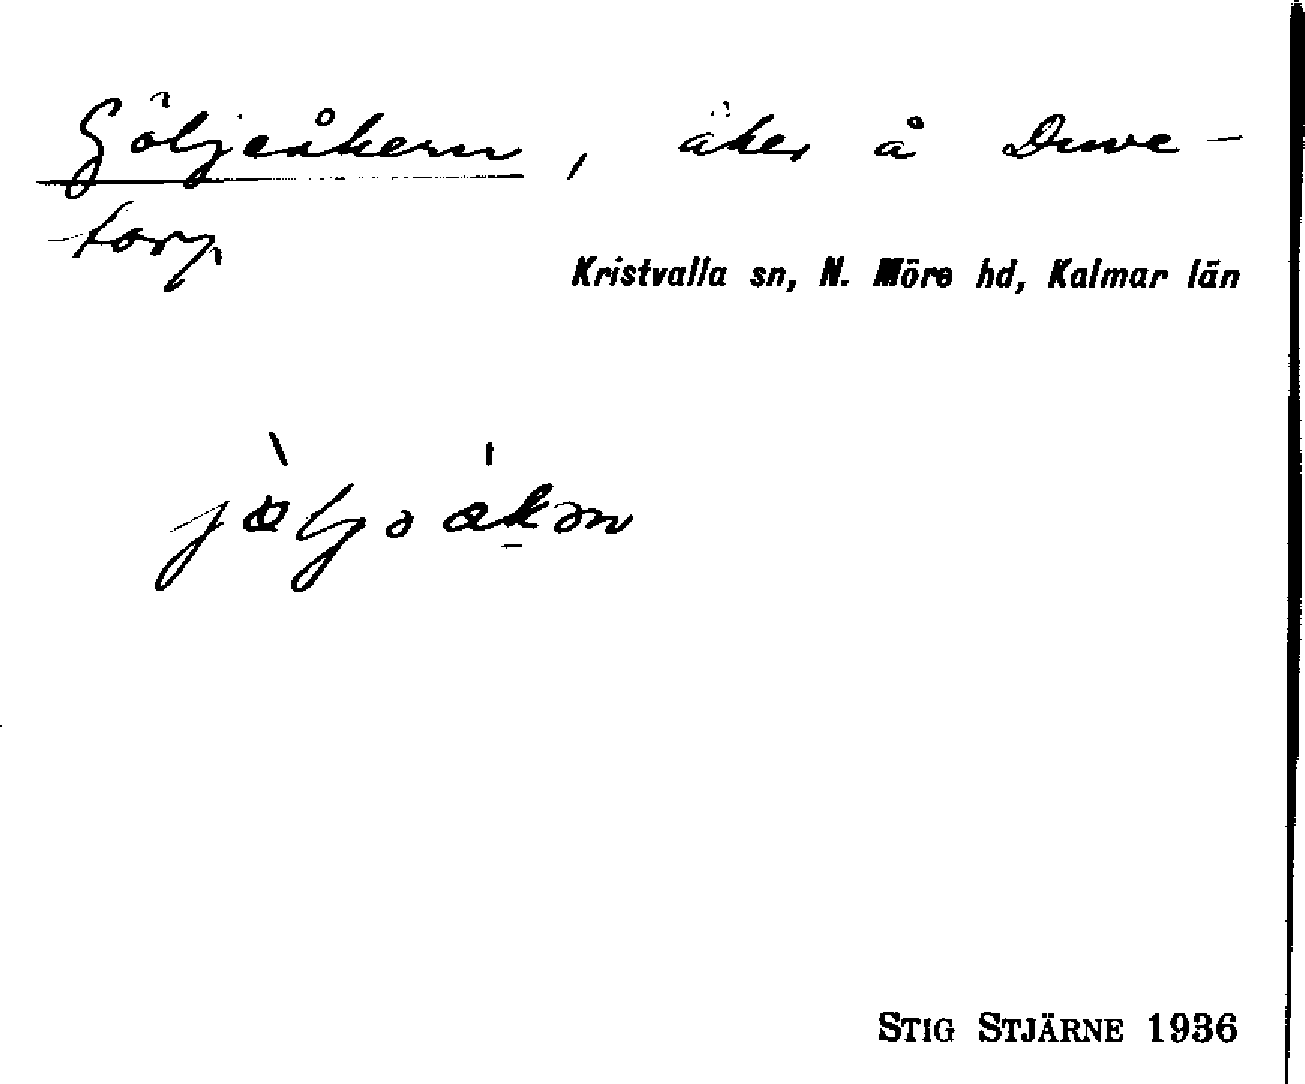 Göljeåkern, åker å Duve-
torp
Kristvalla sn, N. Möre hd, Kalmar län
STIG STJÄRNE 1936